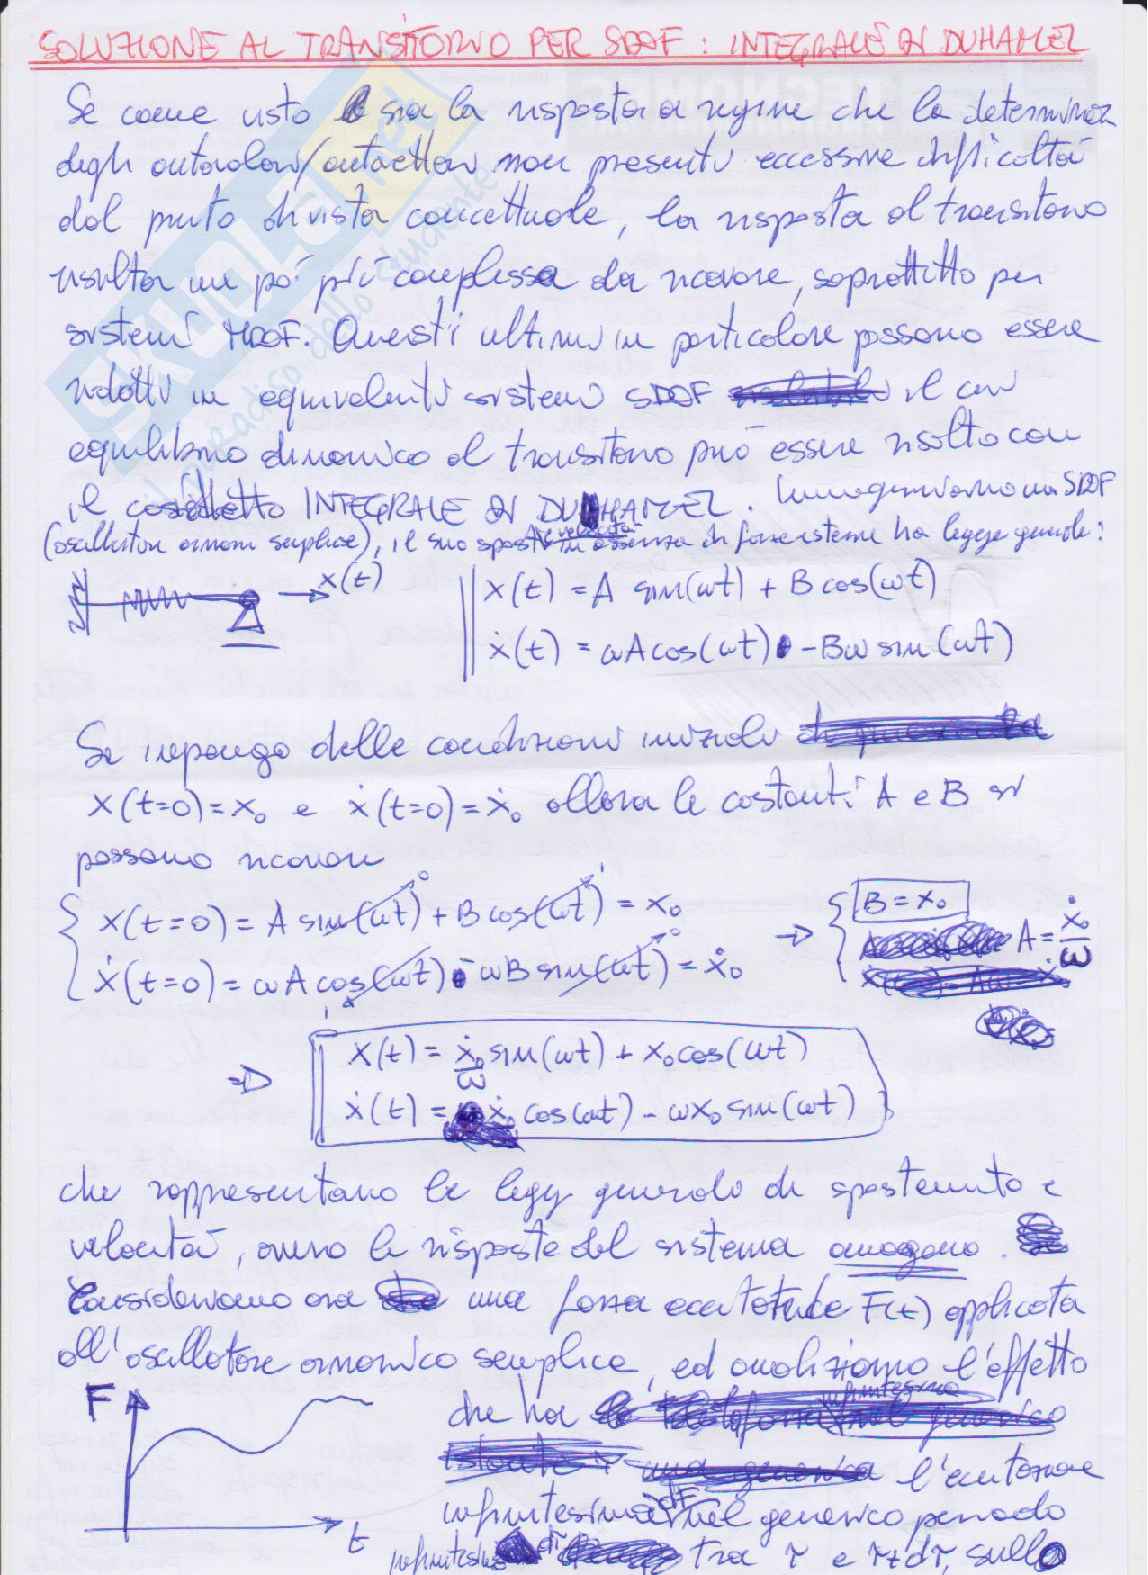 SOLUZIONE AL TRANSITORIO PER SDOF : INTEGRALE DI DUHAMEL
Se come visto sia la risposta a regime che la determinaz
degli autovalori/autovettori non presenti eccessive difficoltà
dal punto di vista concettuale, la risposta al transitorio
risulta un po' più complessa da ricavare, soprattutto per
sistemi MDOF. Questi ultimi in particolare possono essere
ridotti in equivalenti sistemi SDOF il cui
equilibrio dinamico al transitorio può essere risolto con
il cosiddetto INTEGRALE DI DUHAMEL. Immaginiamo un SDOF
(oscillatore armonico semplice), il suo spost. e velocità in assenza di forze esterne ha legge generale:
x(t)
x(t) = A sin(ωt) + B cos(ωt)
ẋ(t) = ωA cos(ωt) - Bω sin(ωt)
Se impongo delle condizioni iniziali
x(t=0) = x₀ e ẋ(t=0) = ẋ₀ allora le costanti A e B si
possono ricavare
x(t=0) = A sin(ωt) + B cos(ωt) = x₀ → B = x₀
ẋ(t=0) = ωA cos(ωt) - ωB sin(ωt) = ẋ₀ A = ẋ₀/ω
⇒ x(t) = ẋ₀/ω sin(ωt) + x₀ cos(ωt)
ẋ(t) = ẋ₀ cos(ωt) - ωx₀ sin(ωt)
che rappresentano le leggi generali di spostamento e
velocità, ovvero le risposte del sistema omogeneo.
Consideriamo ora una forza eccitatrice F(t) applicata
all'oscillatore armonico semplice, ed analizziamo l'effetto
F
che ha
l'eccitazione
infinitesima dF nel generico periodo
t
infinitesimo dτ tra τ e τ+dτ, sullo
skuola.net
il paradiso dello studente